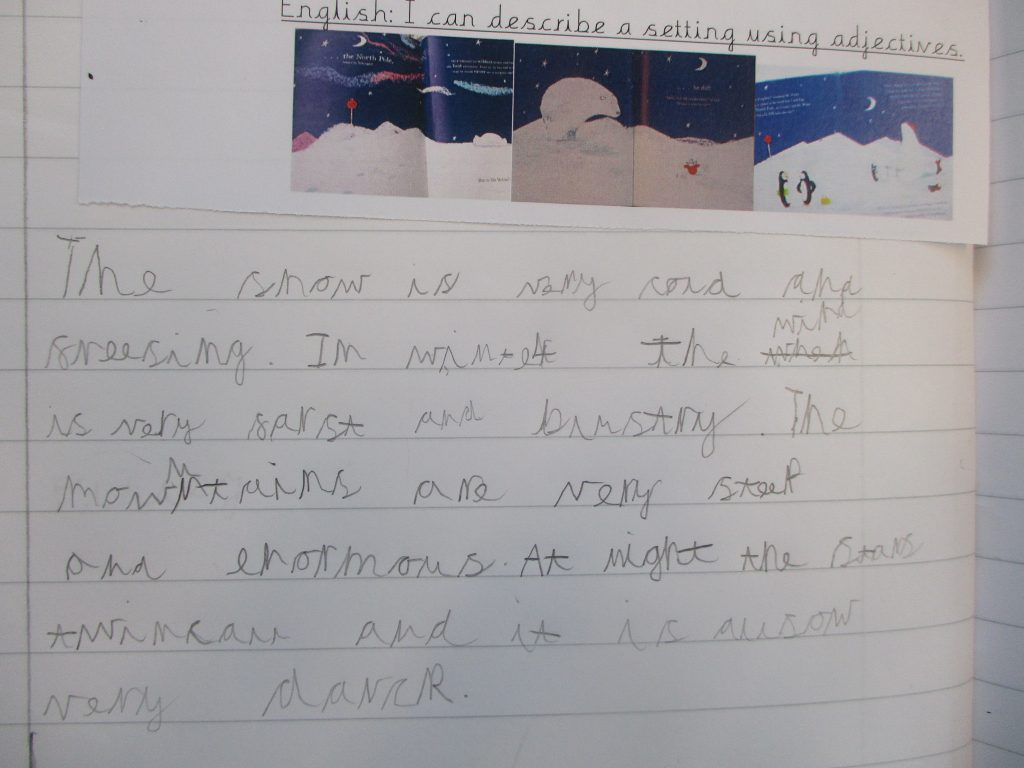 English: I can describe a setting using adjectives.
the North Pole,
The snow is very cold and
freesing. In winter the wind
is very farst and blustry. The
mountains are very steep
and enormous. At night the stars
twinkall and it is allsow
very darck.